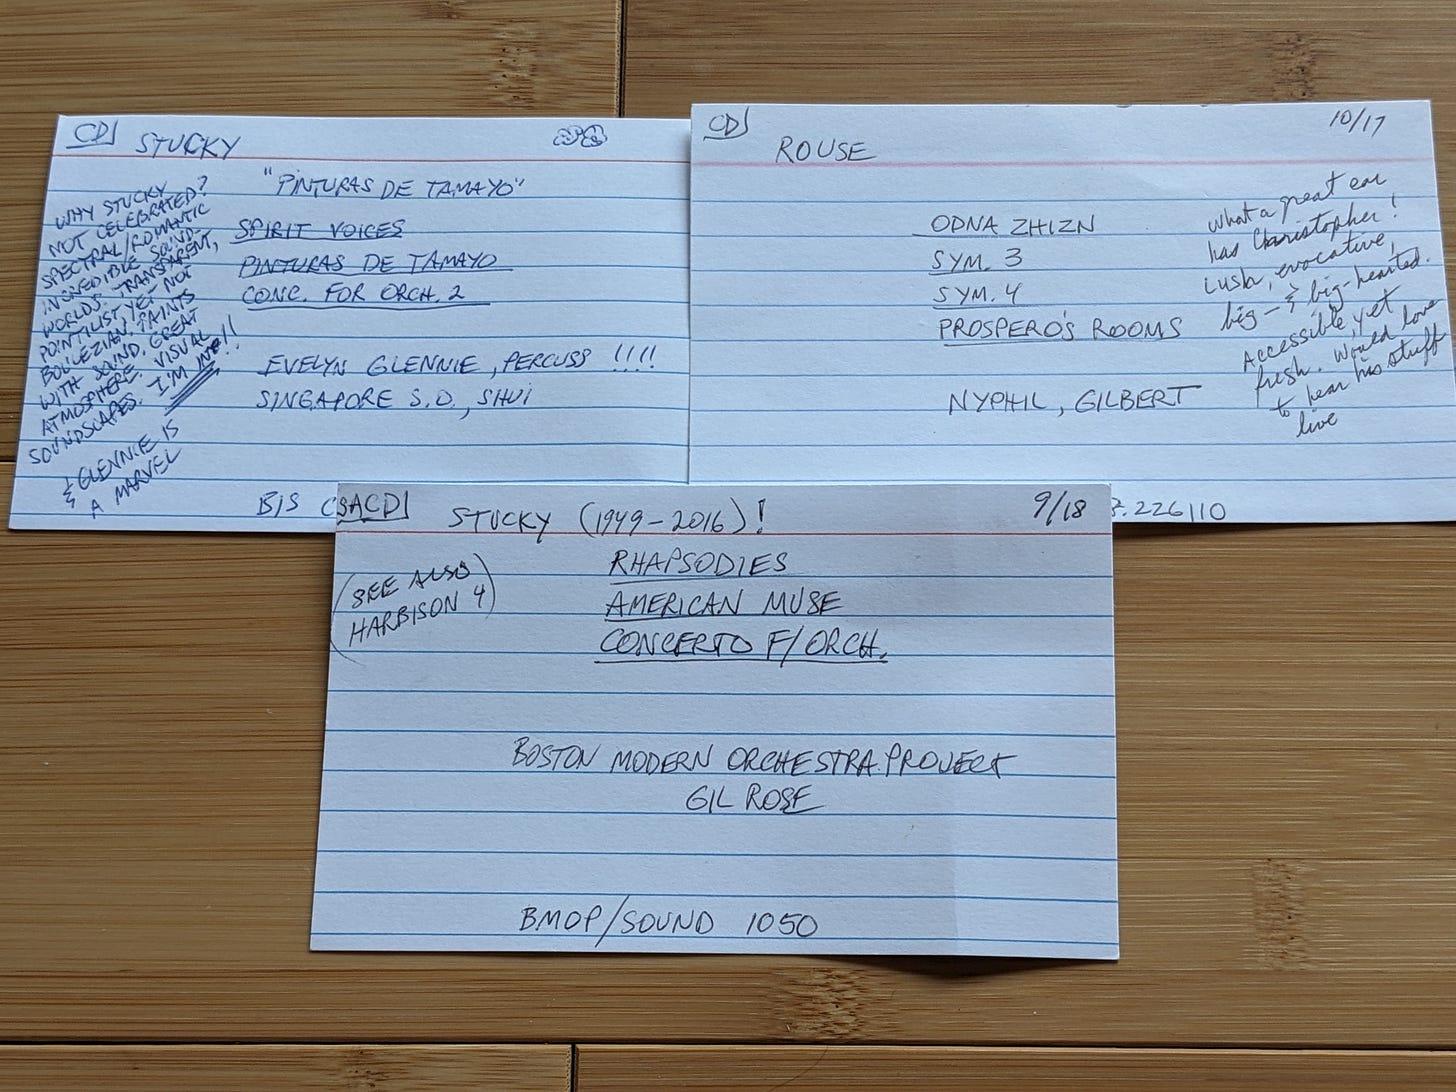 CD STUCKY
"PINTURAS DE TAMAYO"
SPIRIT VOICES
PINTURAS DE TAMAYO
CONC. FOR ORCH. 2
EVELYN GLENNIE, PERCUSS !!!!
SINGAPORE S.O., SHUI
WHY STUCKY
NOT CELEBRATED?
SPECTRAL/ROMANTIC
INCREDIBLE SOUND-
WORLDS. TRANSPARENT,
POINTILIST, YET NOT
BOULEZIAN. PAINTS
WITH SOUND. GREAT
ATMOSPHERE. VISUAL
SOUNDSCAPES. I'M IN!!!
& GLENNIE IS
A MARVEL
BIS C
CD 10/17
ROUSE
ODNA ZHIZN
SYM. 3
SYM. 4
PROSPERO'S ROOMS
NYPHIL, GILBERT
What a great ear
has Christopher!
Lush, evocative,
big- & big-hearted.
Accessible, yet
fresh. Would love
to hear his stuff
live
.226110
SACD STUCKY (1949-2016)! 9/18
(SEE ALSO
HARBISON 4)
RHAPSODIES
AMERICAN MUSE
CONCERTO F/ORCH.
BOSTON MODERN ORCHESTRA PROJECT
GIL ROSE
BMOP/SOUND 1050